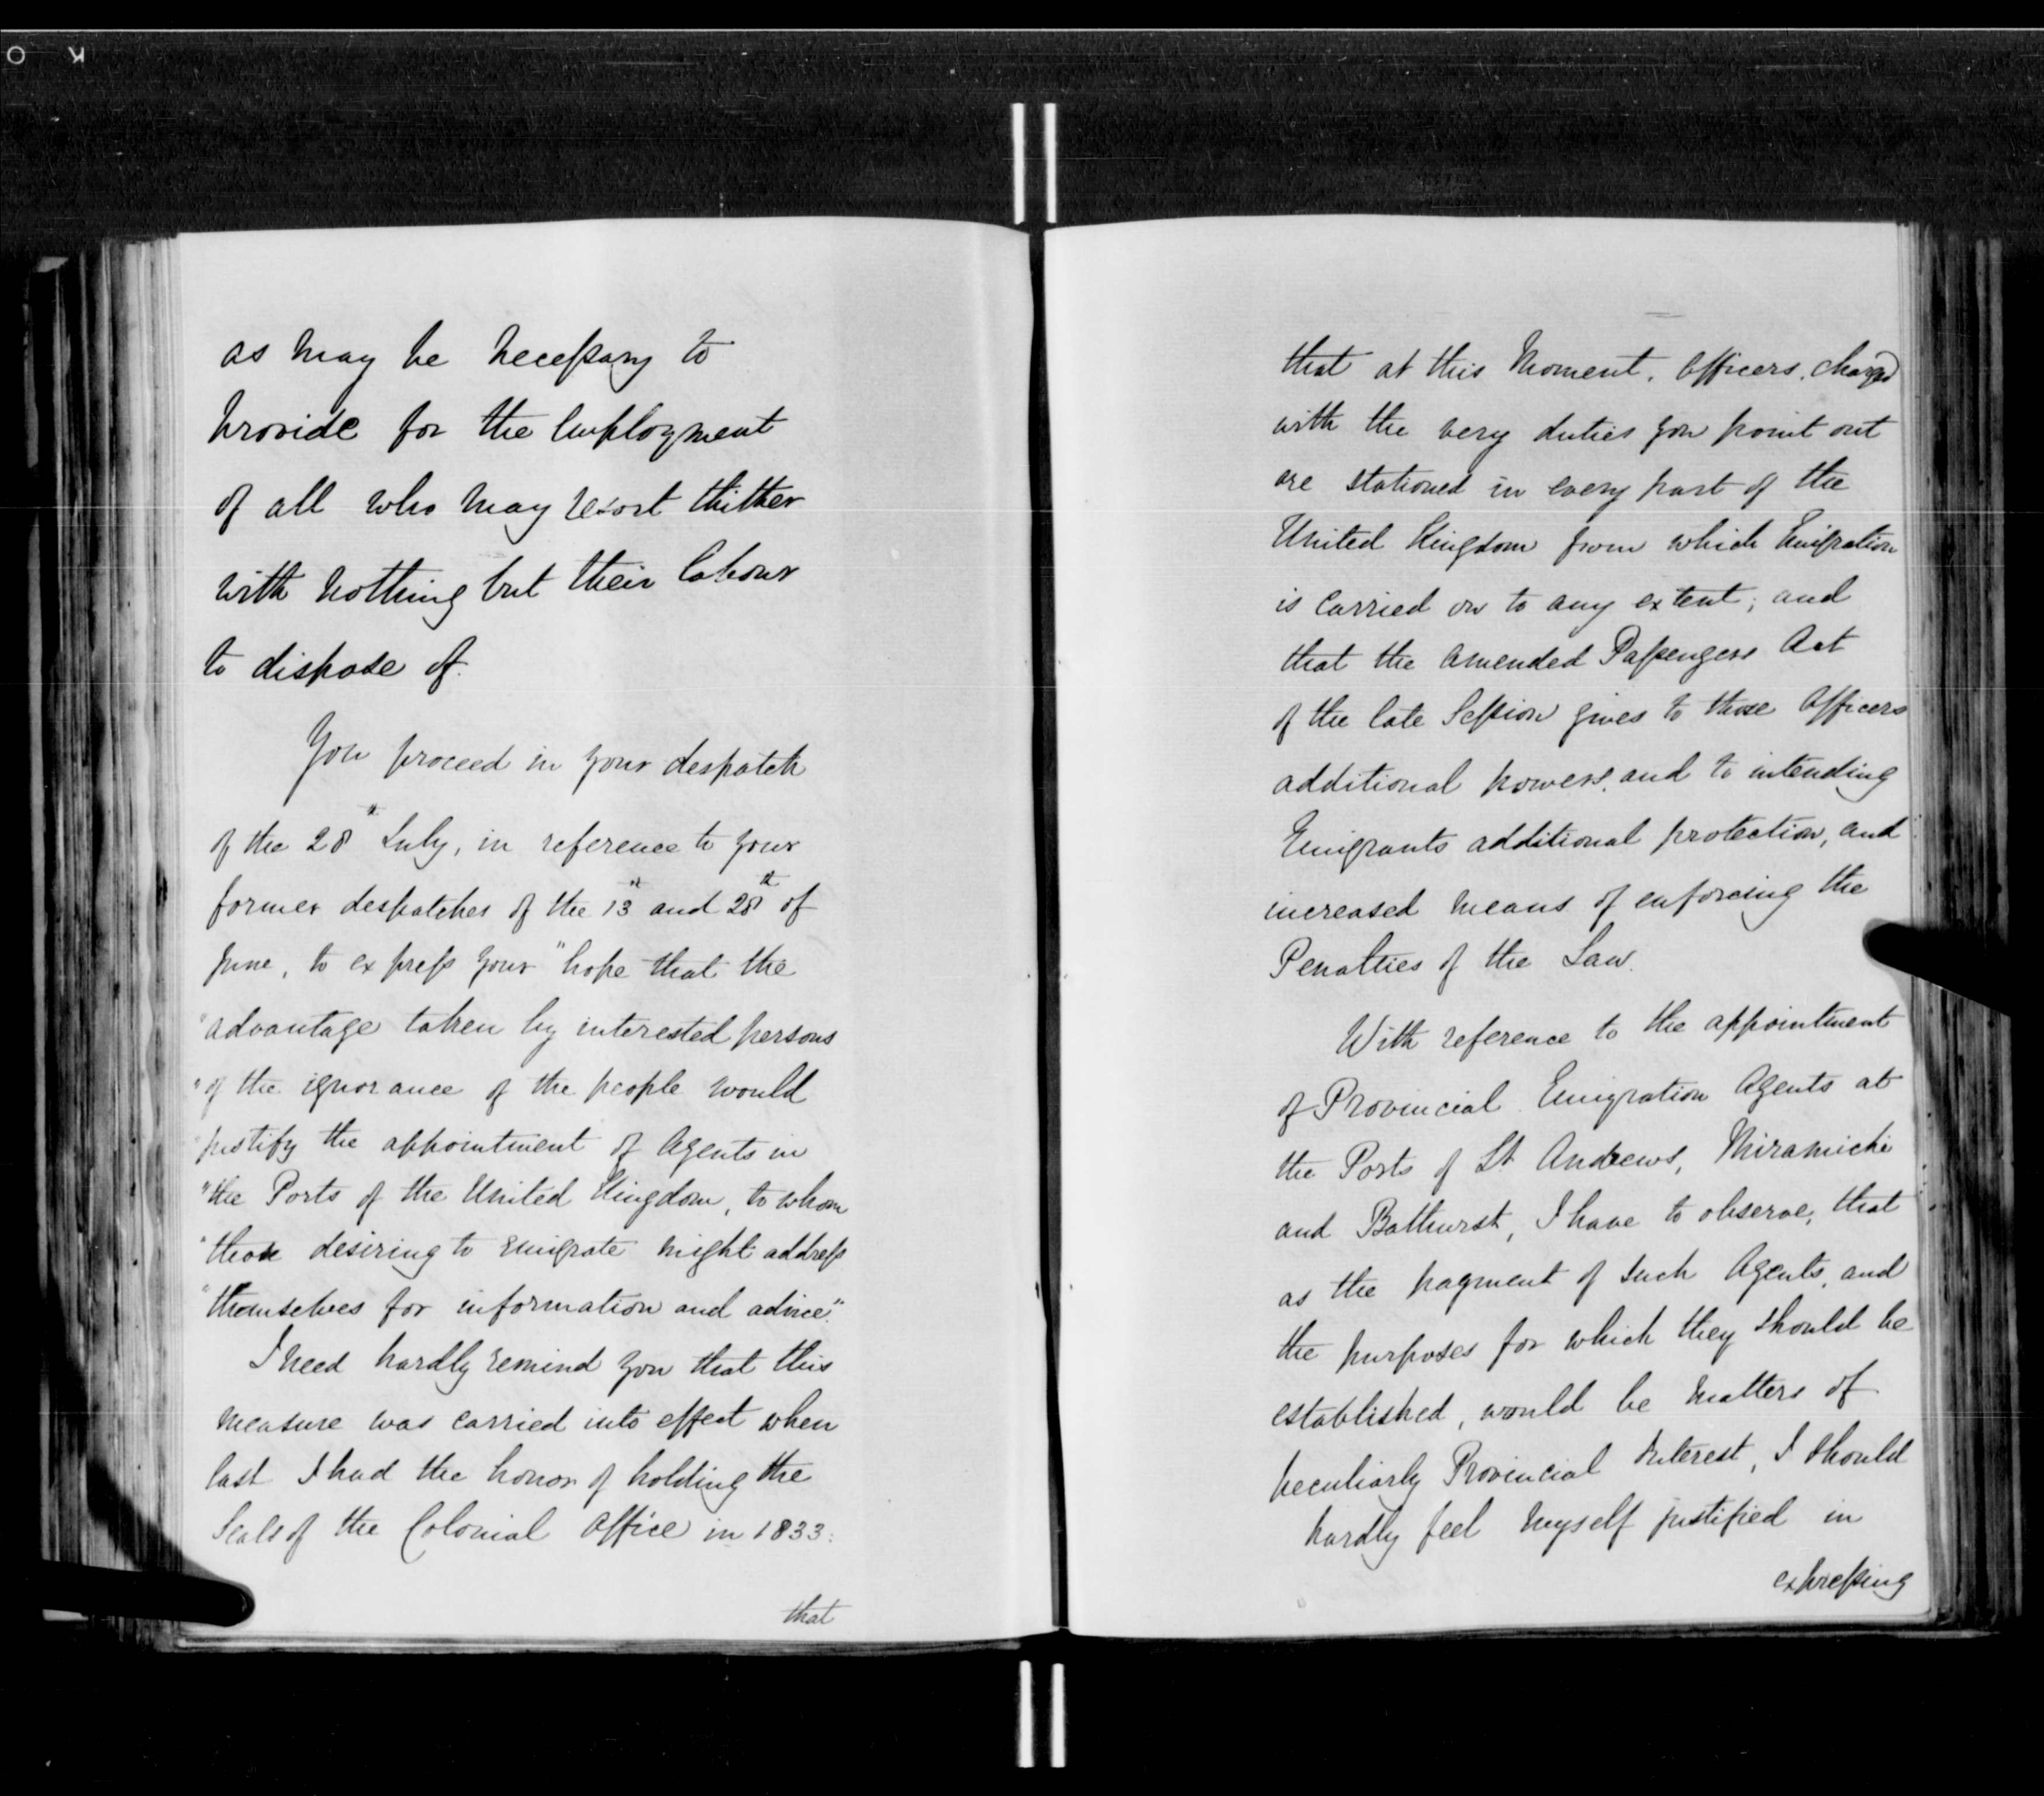 O K
as may be necessary to
provide for the employment
of all who may resort thither
with nothing but their labour
to dispose of.
You proceed in your despatch
of the 28th July, in reference to your
former despatches of the 13th and 28th of
June, to express your "hope that the
"advantage taken by interested persons
"of the ignorance of the people would
"justify the appointment of Agents in
"the Ports of the United Kingdom, to whom
"those desiring to emigrate might address
"themselves for information and advice."
I need hardly remind you that this
measure was carried into effect when
last I had the honor of holding the
Seals of the Colonial Office in 1833:
that
that at this moment, Officers, charged
with the very duties you point out
are stationed in every part of the
United Kingdom from which Emigration
is carried on to any extent; and
that the amended Passengers Act
of the late Session gives to those Officers
additional powers, and to intending
Emigrants additional protection, and
increased means of enforcing the
Penalties of the Law.
With reference to the appointment
of Provincial Emigration Agents at
the Ports of St Andrews, Miramichi
and Bathurst, I have to observe, that
as the payment of such Agents, and
the purposes for which they should be
established, would be matters of
peculiarly Provincial Interest, I should
hardly feel myself justified in
expressing